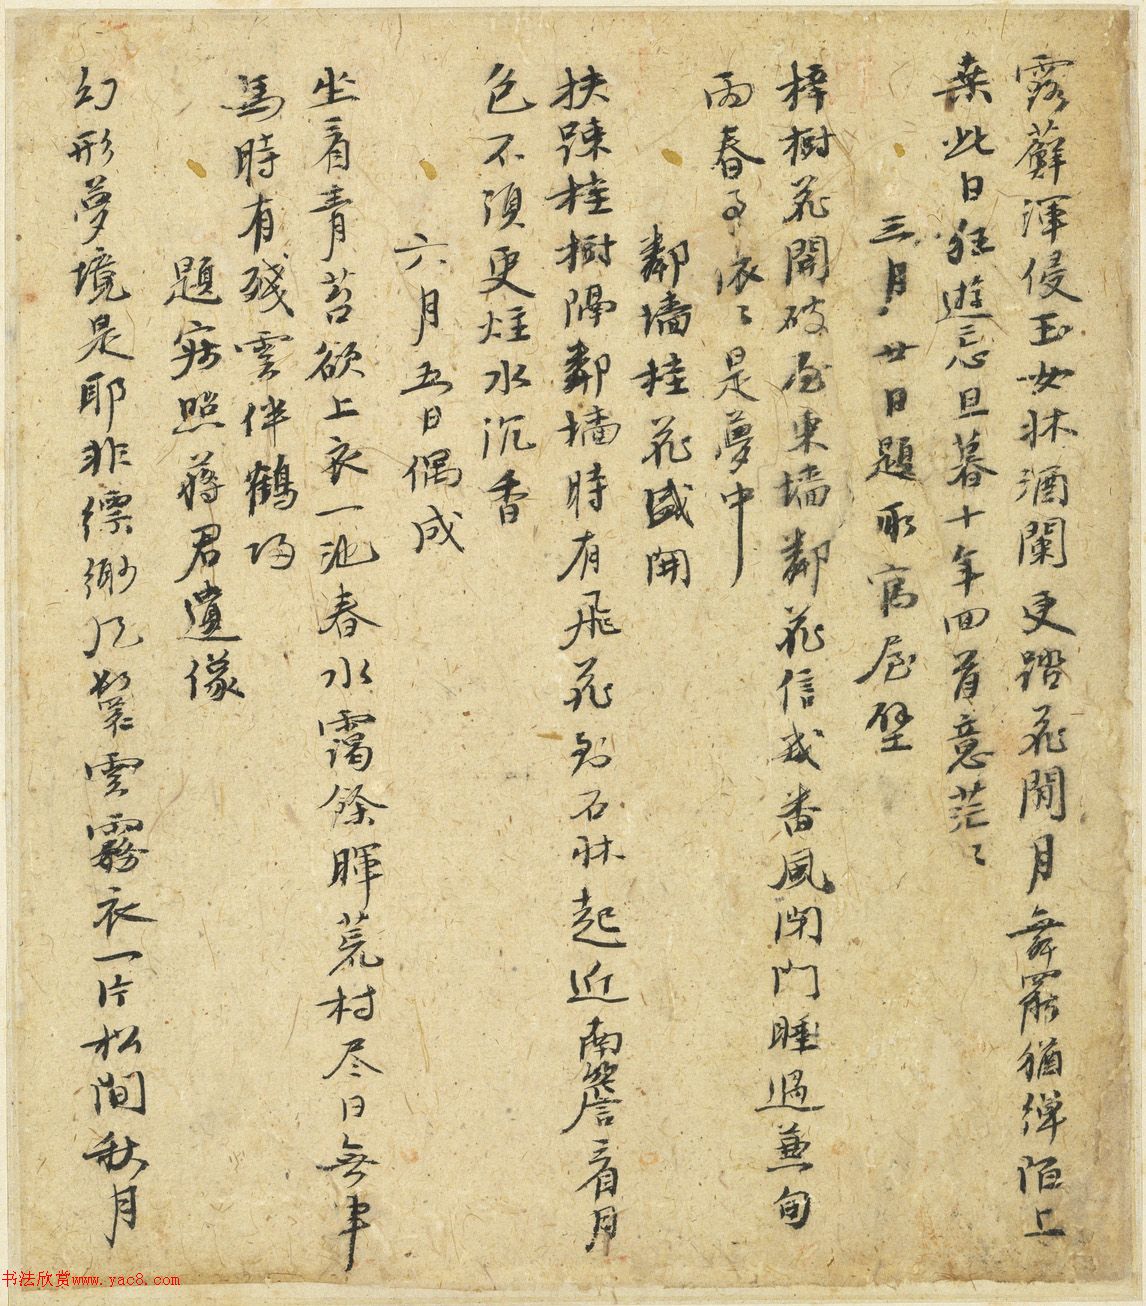 露蘚渾侵玉女牀酒闌更踏花間月舞罷猶彈陌上
桒此日狂遊忘旦暮十年回首意茫〻
三月廿日題所寓屋壁
梓樹花開破屋東墻鄰花信幾番風閉門睡過兼旬
雨春事依〻是夢中
鄰墻桂花盛開
扶踈桂樹隔鄰墻時有飛花到石牀起近南簷看月
色不須更炷水沉香
六月五日偶成
坐看青苔欲上衣一池春水靄餘暉荒村尽日無車
馬時有殘雲伴鶴歸
題寫照蔣君遺像
幻形夢境是耶非縹緲風鬟雲霧衣一片松間秋月
书法欣赏www.yac8.com